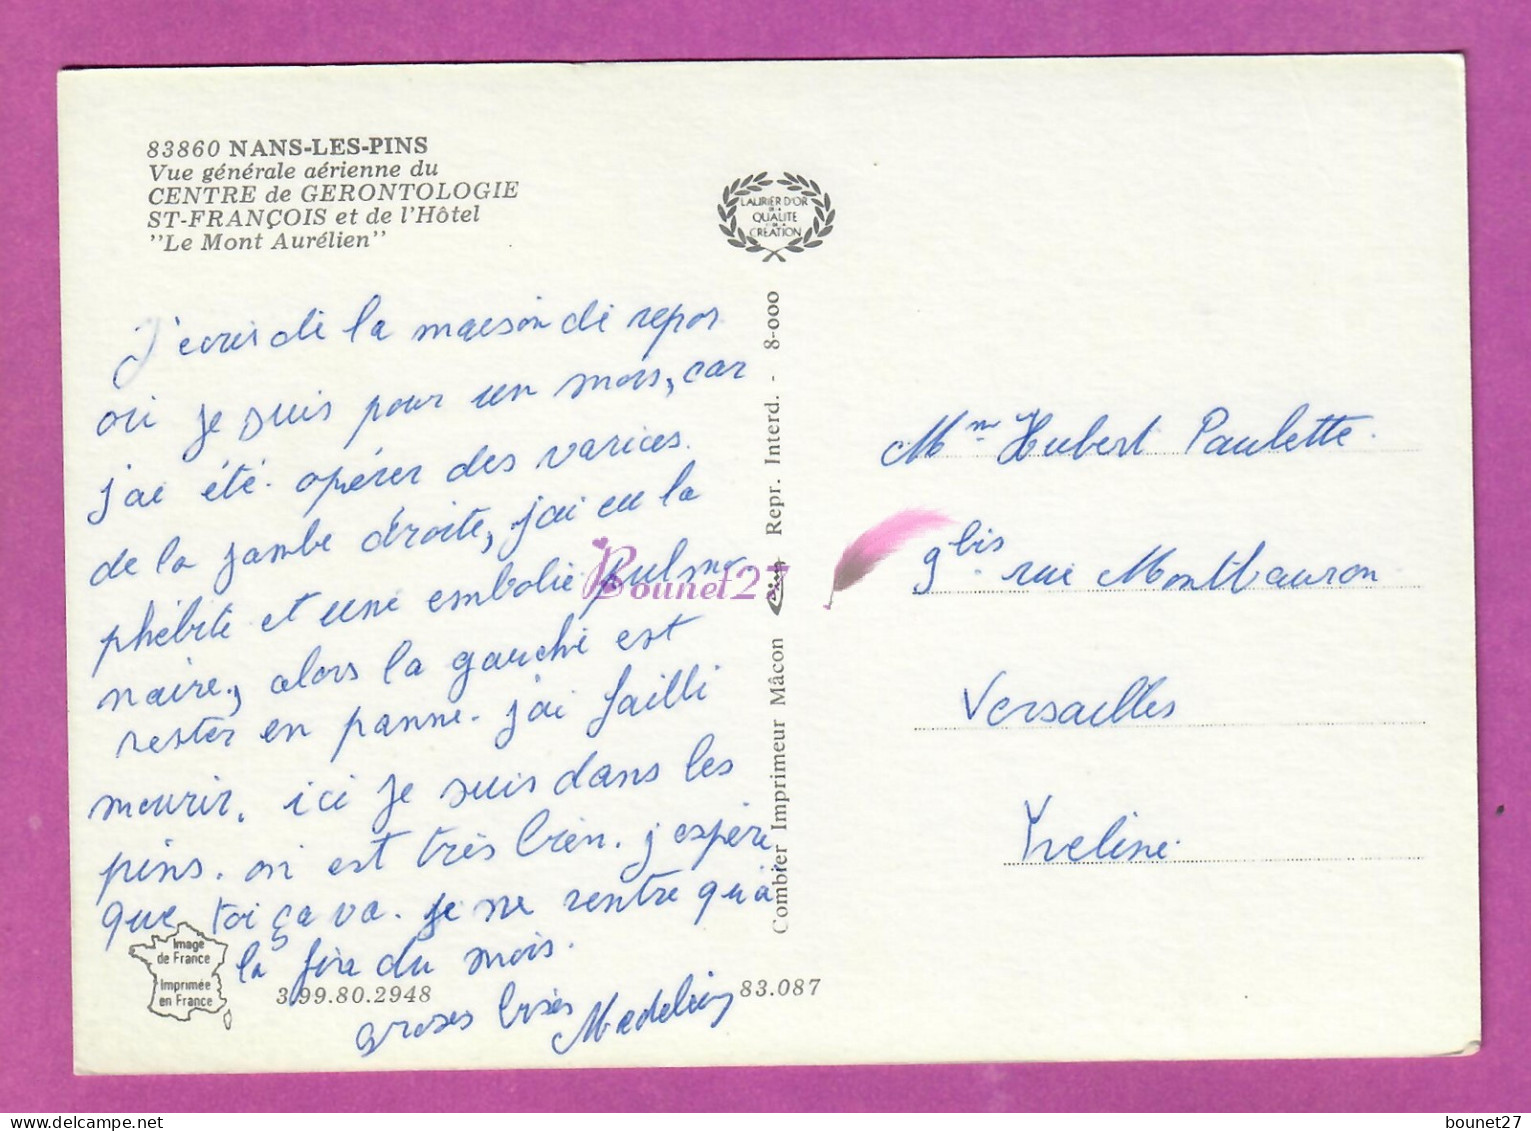 83860 NANS-LES-PINS
Vue générale aérienne du
CENTRE de GERONTOLOGIE
ST-FRANÇOIS et de l'Hôtel
"Le Mont Aurélien"
LAURIER D'OR
DE LA
QUALITÉ
ET DE LA
CRÉATION
J'écris de la maison de repos
où je suis pour un mois, car
j'ai été. opérer des varices.
de la jambe droite, j'ai eu la
phébite et une embolie pulmo-
naire, alors la gauche est
rester en panne. j'ai failli
mourir. ici je suis dans les
pins. on est très bien. j'espère
que toi ça va. je ne rentre qu'à
la fin du mois.
groses bises Madeleine
Image
de France
Imprimée
en France
3.99.80.2948
83.087
Combier Imprimeur Mâcon Cim Repr. Interd. - 8-000
Mme Hubert Paulette.
9 bis rue Montbauron
Versailles
Yveline.
Bounet27
bounet27